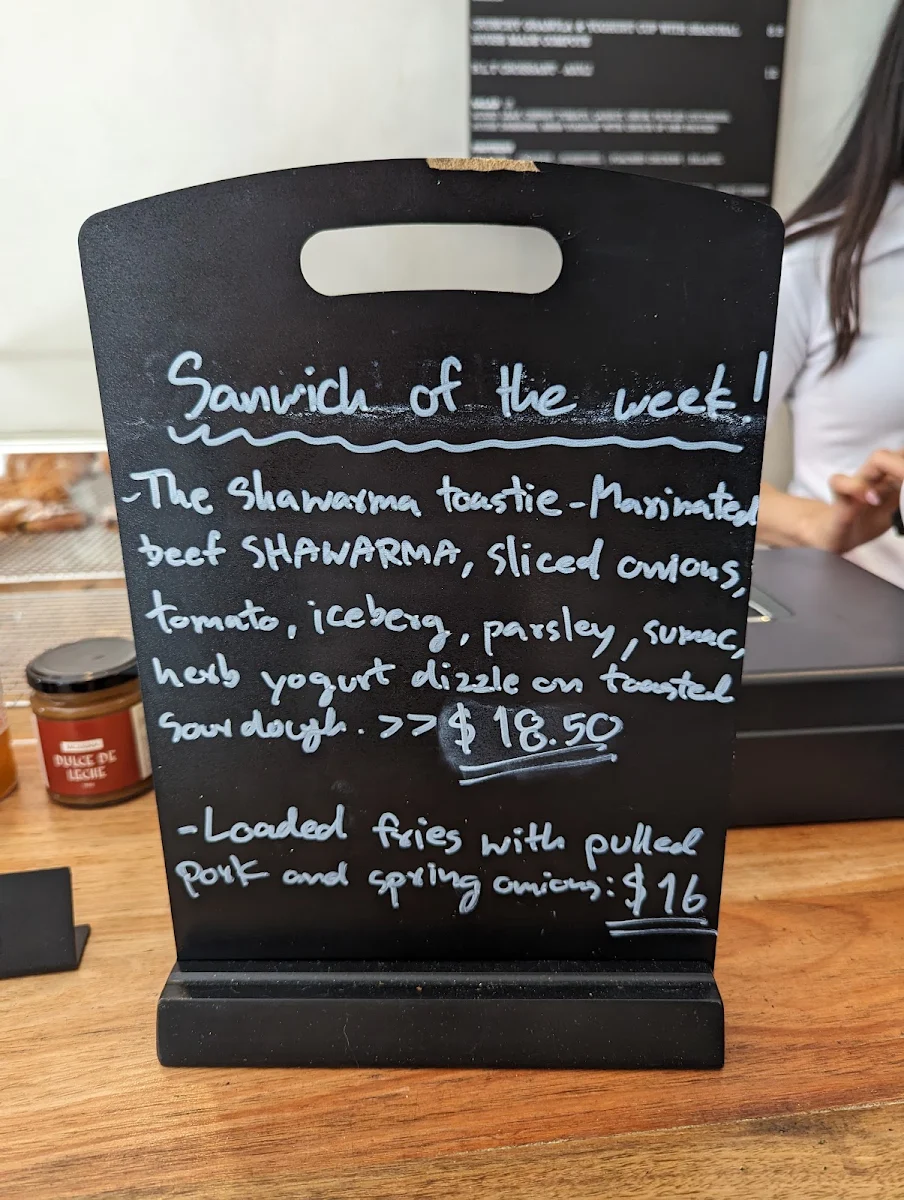 Sanwich of the week!
-The Shawarma toastie-Marinated
beef SHAWARMA, sliced onions,
tomato, iceberg, parsley, sumac,
herb yogurt dizzle on toasted
sourdough. >> $18.50
-Loaded fries with pulled
pork and spring onions: $16
DULCE DE
LECHE